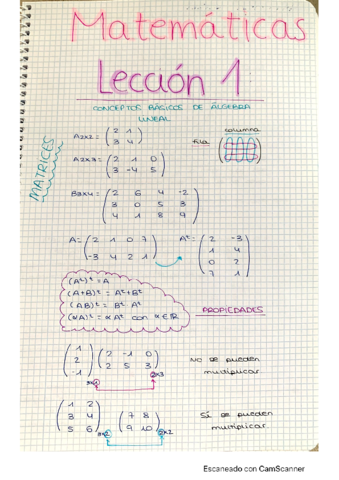 Matemáticas
Lección 1
CONCEPTOS BÁSICOS DE ÁLGEBRA
LINEAL
MATRICES
A2x2 = (2 1
3 4)
fila
columna
A2x3 = (2 1 0
3 -4 5)
B3x4 = (2 6 4 -2
3 0 5 3
4 1 8 9)
A = (2 1 0 7
-3 4 2 1)
Aᵗ = (2 -3
1 4
0 2
7 1)
(Aᵗ)ᵗ = A
(A+B)ᵗ = Aᵗ+Bᵗ
(AB)ᵗ = Bᵗ Aᵗ
(αA)ᵗ = αAᵗ con α∈ℝ
PROPIEDADES
(1
2
-1)
(2 -1 0
2 5 3)
3x1
2x3
No se pueden
multiplicar
(1 2
3 4
5 6)
3x2
(7 8
9 10)
2x2
Sí se pueden
multiplicar.
Escaneado con CamScanner